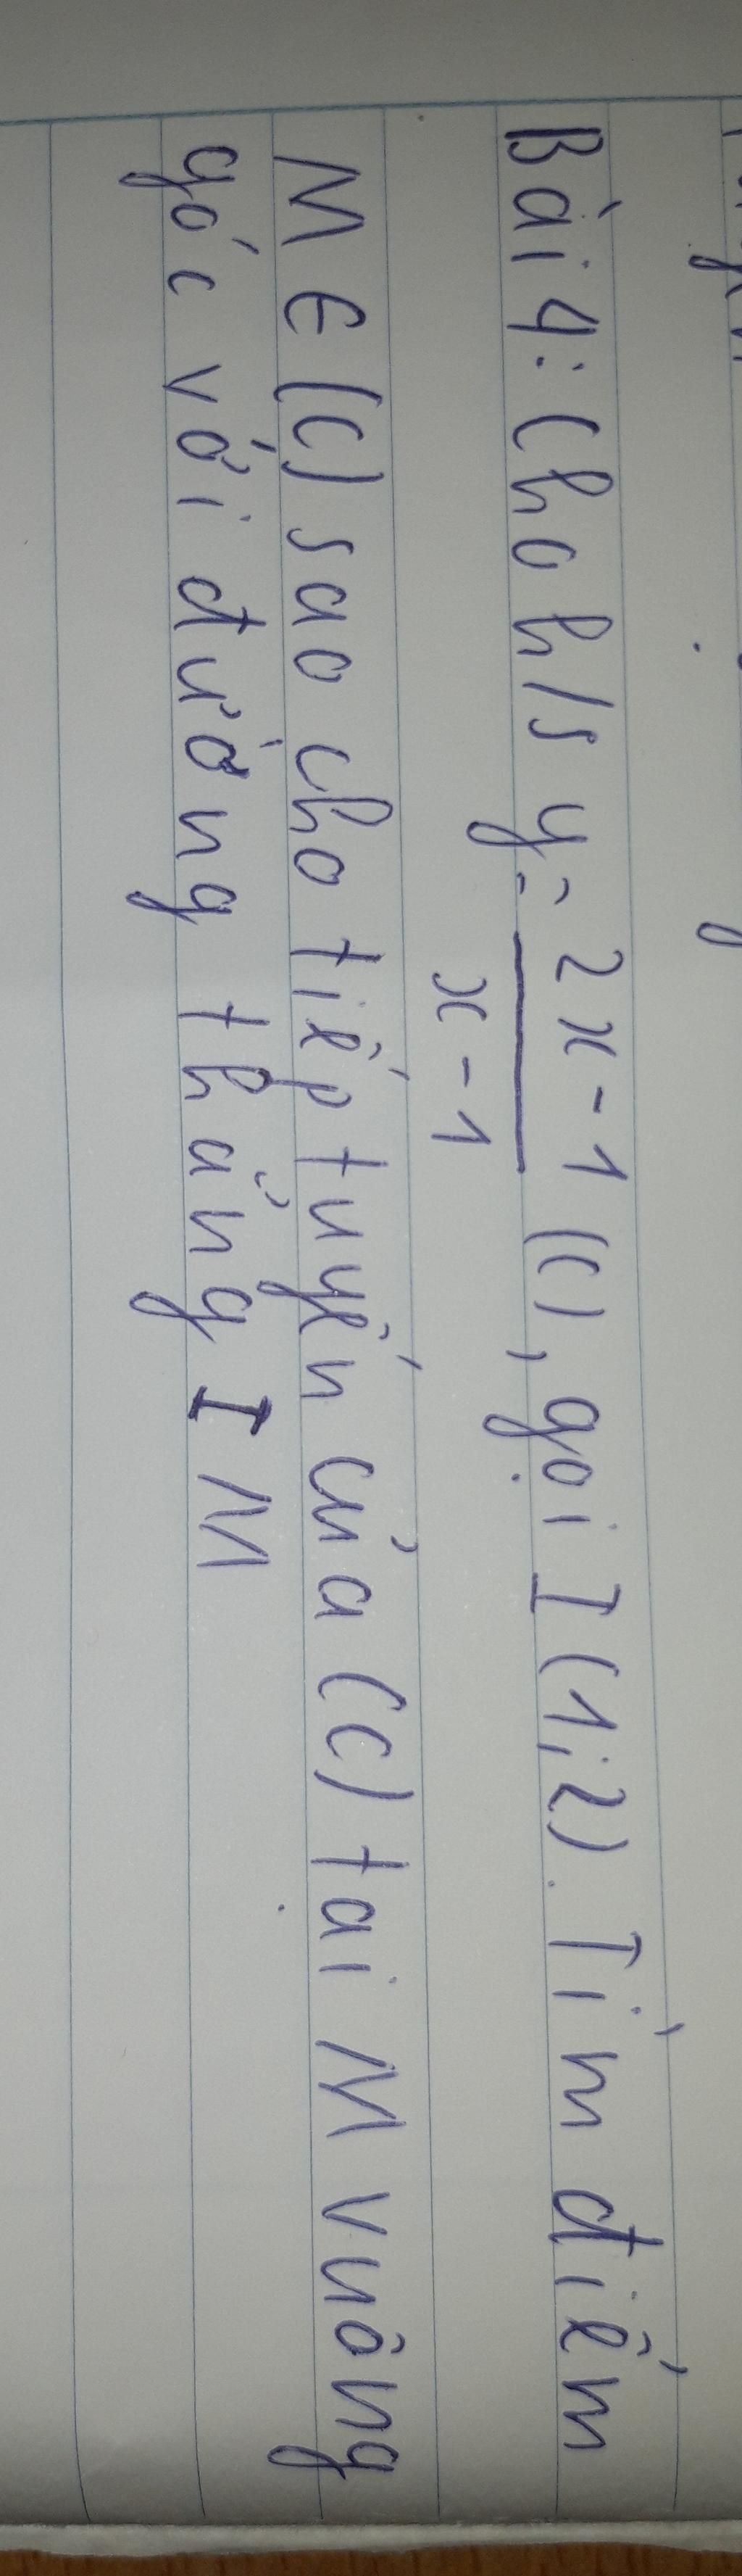 Bài 4: Cho h/s y = 2x-1 (C), gọi I (1;2). Tìm điểm
x-1
M ∈ (C) sao cho tiếp tuyến của (C) tại M vuông
góc với đường thẳng IM